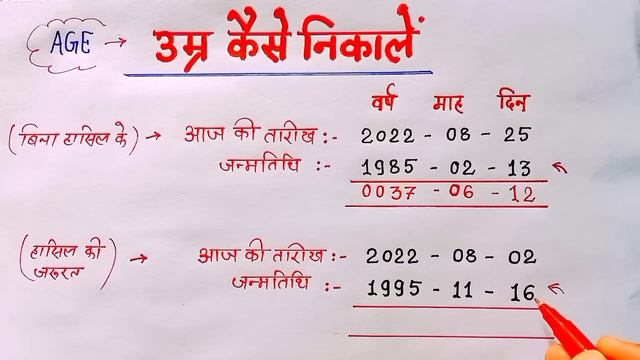 AGE → उम्र कैसे निकालें
वर्ष माह दिन
(बिना हासिल के) → आज की तारीख :- 2022 - 08 - 25
जन्मतिथि :- 1985 - 02 - 13
0037 - 06 - 12
(हासिल की जरूरत) → आज की तारीख :- 2022 - 08 - 02
जन्मतिथि :- 1995 - 11 - 16